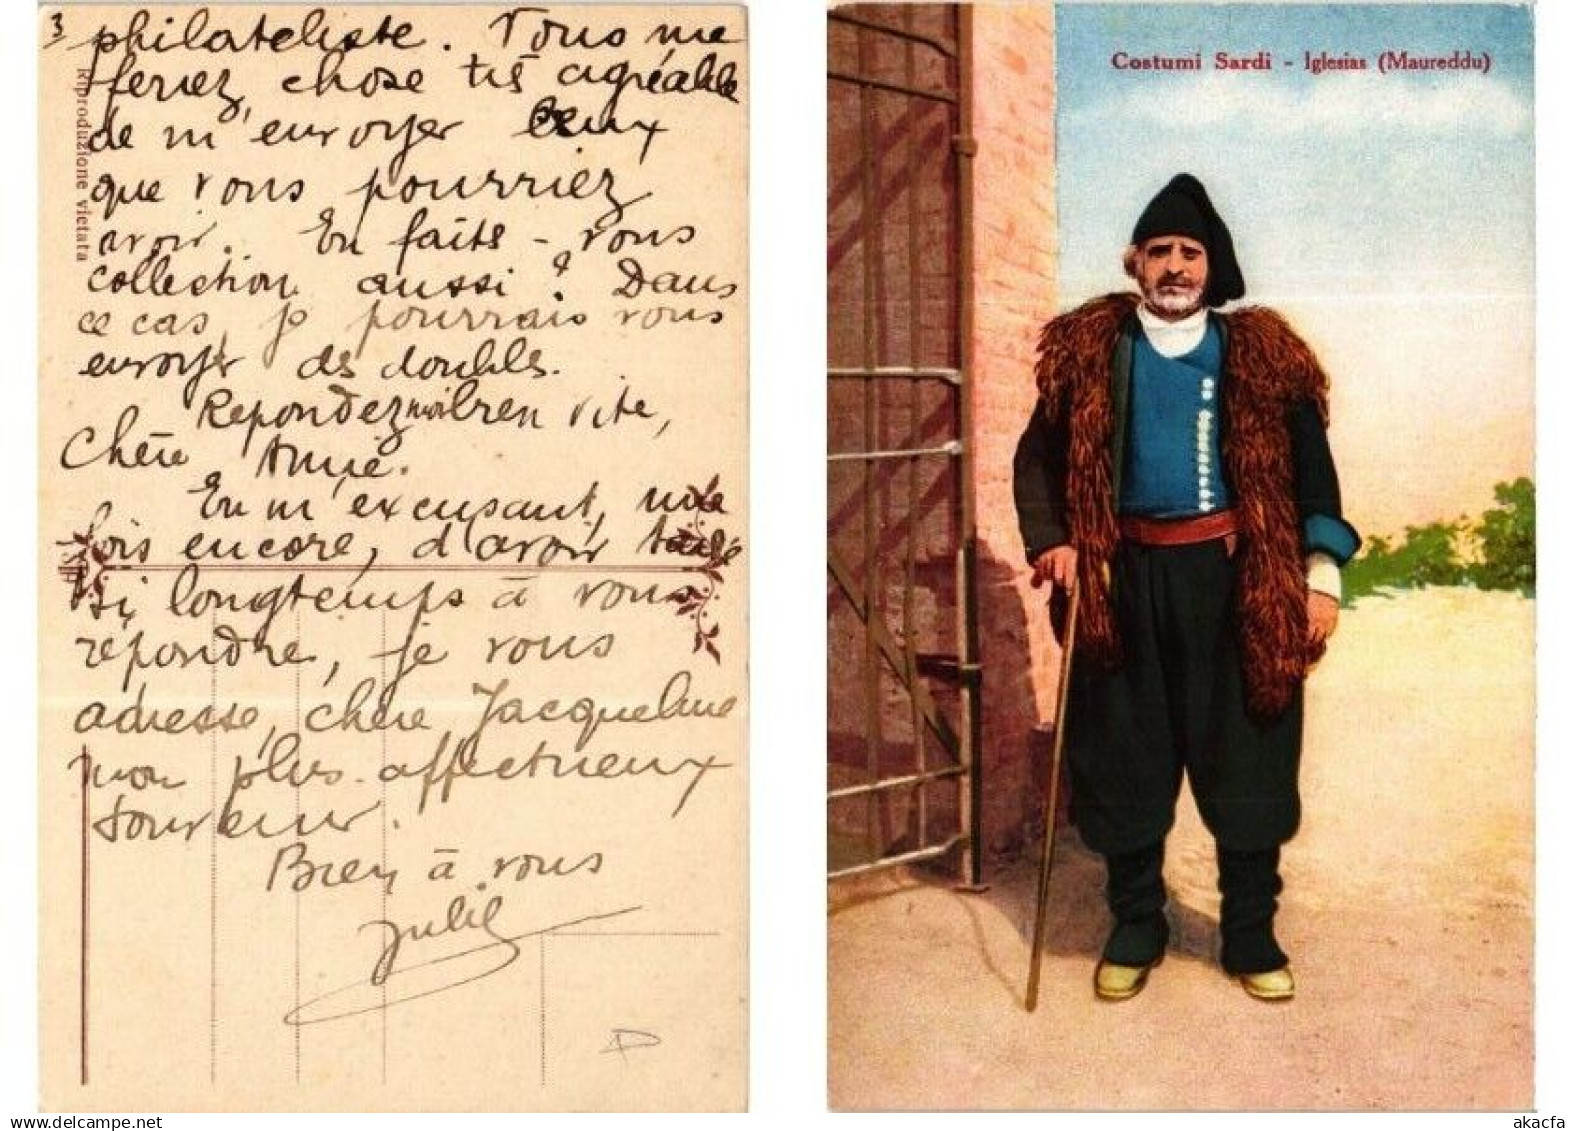 3
philateliste. Vous me
feriez, chose très agréable
de m'envoyer ceux
que vous pourriez
avoir. En faits - vous
collection aussi ? Dans
ce cas, je pourrais vous
envoyer des doubles.
Repondez moi bien vite,
Chère Amie.
En m'excusant, une
fois encore, d'avoir tardé
si longtemps à vous
répondre, je vous
adresse, chère Jacqueline
mon plus affectueux
souvenir.
Bien à vous
Riproduzione vietata
Costumi Sardi - Iglesias (Maureddu)
akacfa